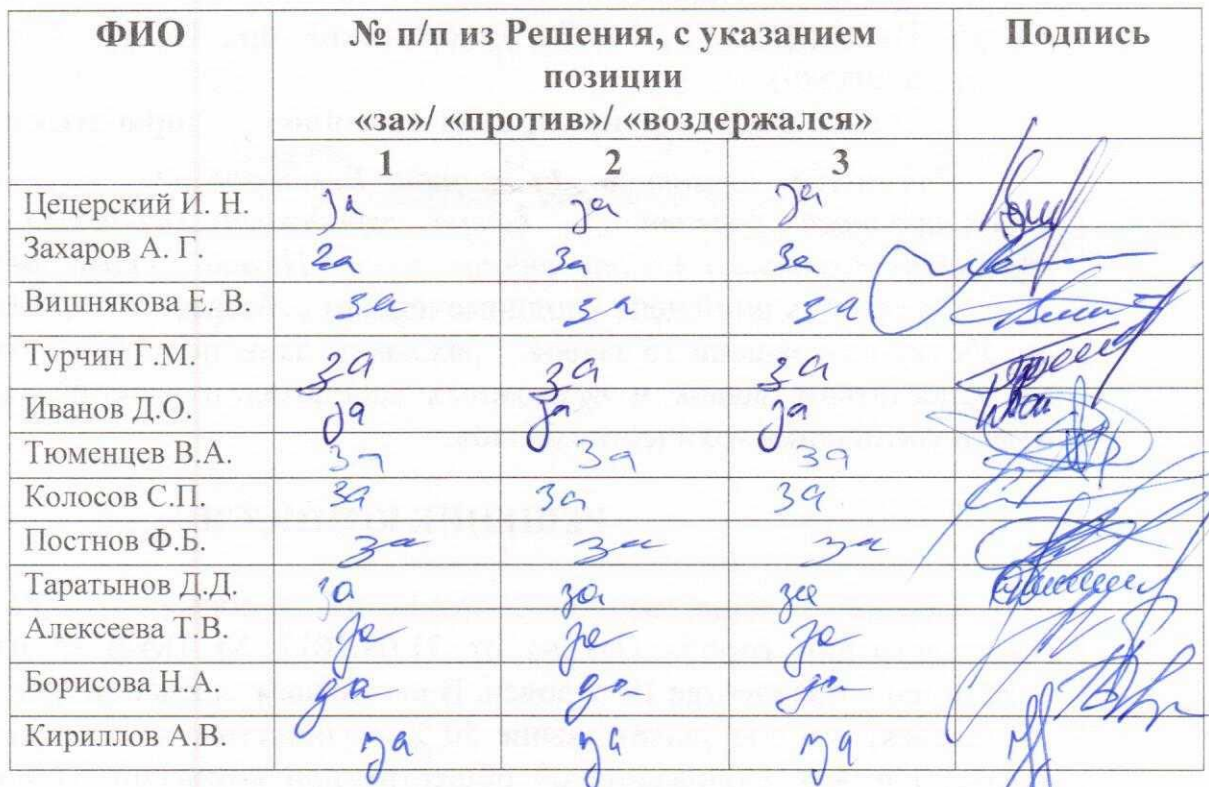 ФИО № п/п из Решения, с указанием Подпись
позиции
«за»/ «против»/ «воздержался»
1 2 3
Цецерский И. Н. за за за
Захаров А. Г. за за за
Вишнякова Е. В. за за за
Турчин Г.М. за за за
Иванов Д.О. за за за
Тюменцев В.А. за за за
Колосов С.П. за за за
Постнов Ф.Б. за за за
Таратынов Д.Д. за за за
Алексеева Т.В. за за за
Борисова Н.А. за за за
Кириллов А.В. за за за